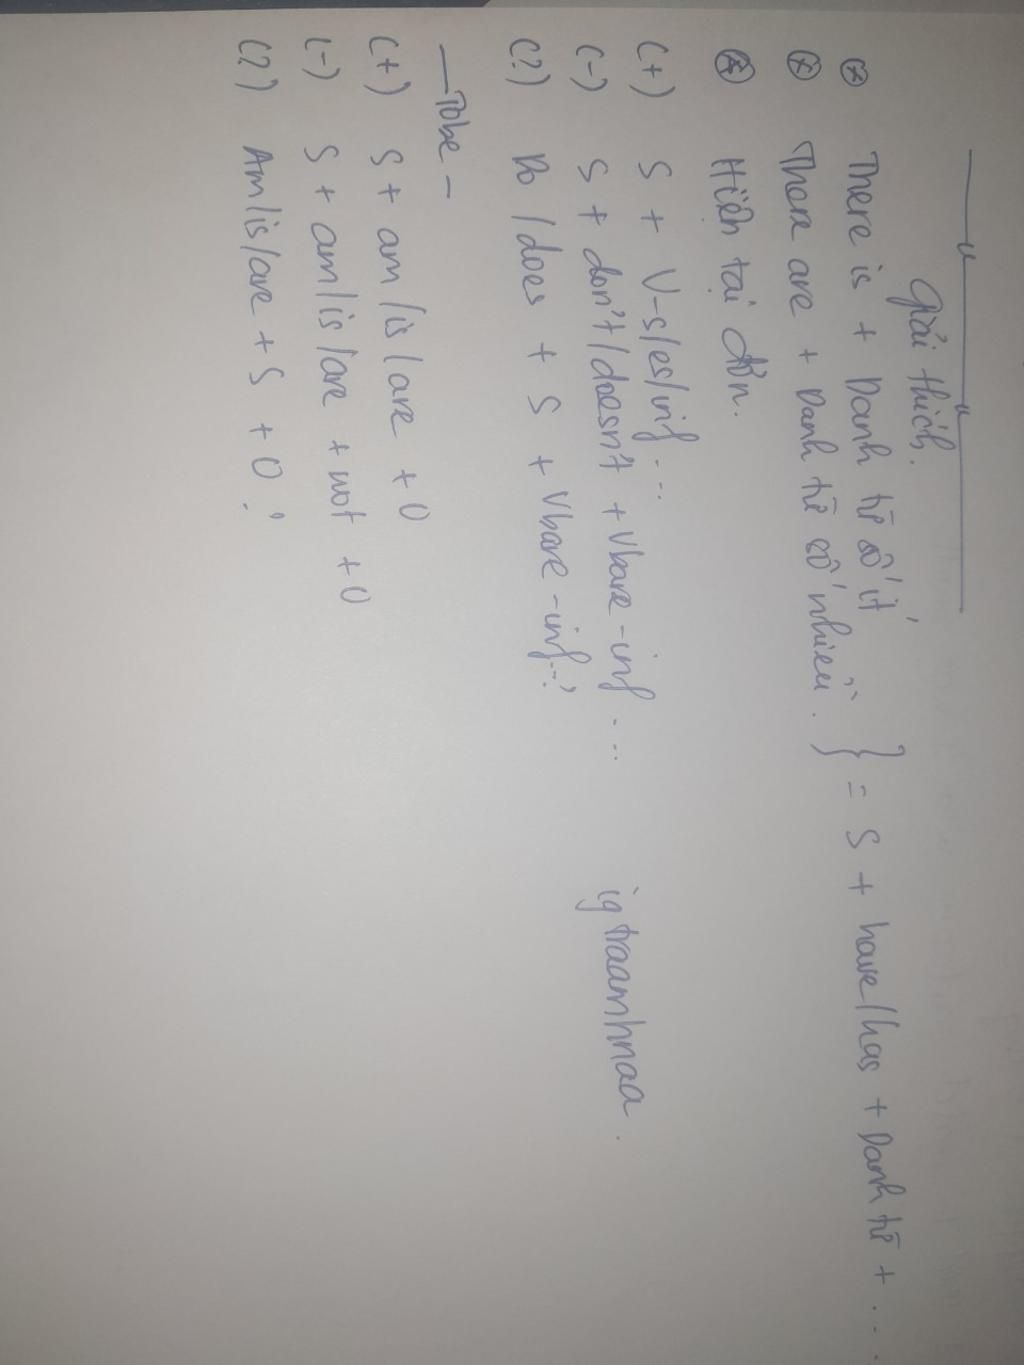 Giải thích.
⊛ There is + Danh từ số ít } = S + have/has + Danh từ + ...
⊛ There are + Danh từ số nhiều.
⊛ Hiện tại đơn.
(+) S + V-s/es/inf ...
(-) S + don't/doesn't + Vbare-inf ...
(?) Do/does + S + Vbare-inf...?
ig traamhnaa.
— Tobe —
(+) S + am/is/are + O
(-) S + am/is/are + not + O
(?) Am/is/are + S + O?